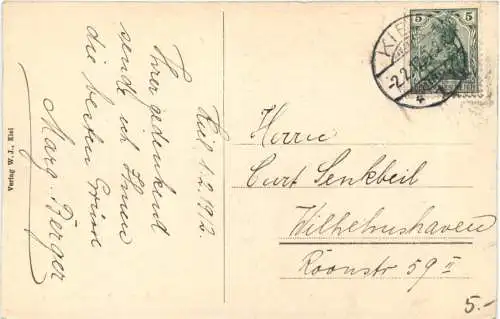 Kiel 1.2.1912.
Ihrer gedenkend
sende ich Ihnen
die besten Grüsse
Marg. Berger
Verlag W. J., Kiel
5 5
KIEL
2.2.12.
Herrn
Curt Senkbeil
Wilhelmshaven
Roonstr 59 II
5.-